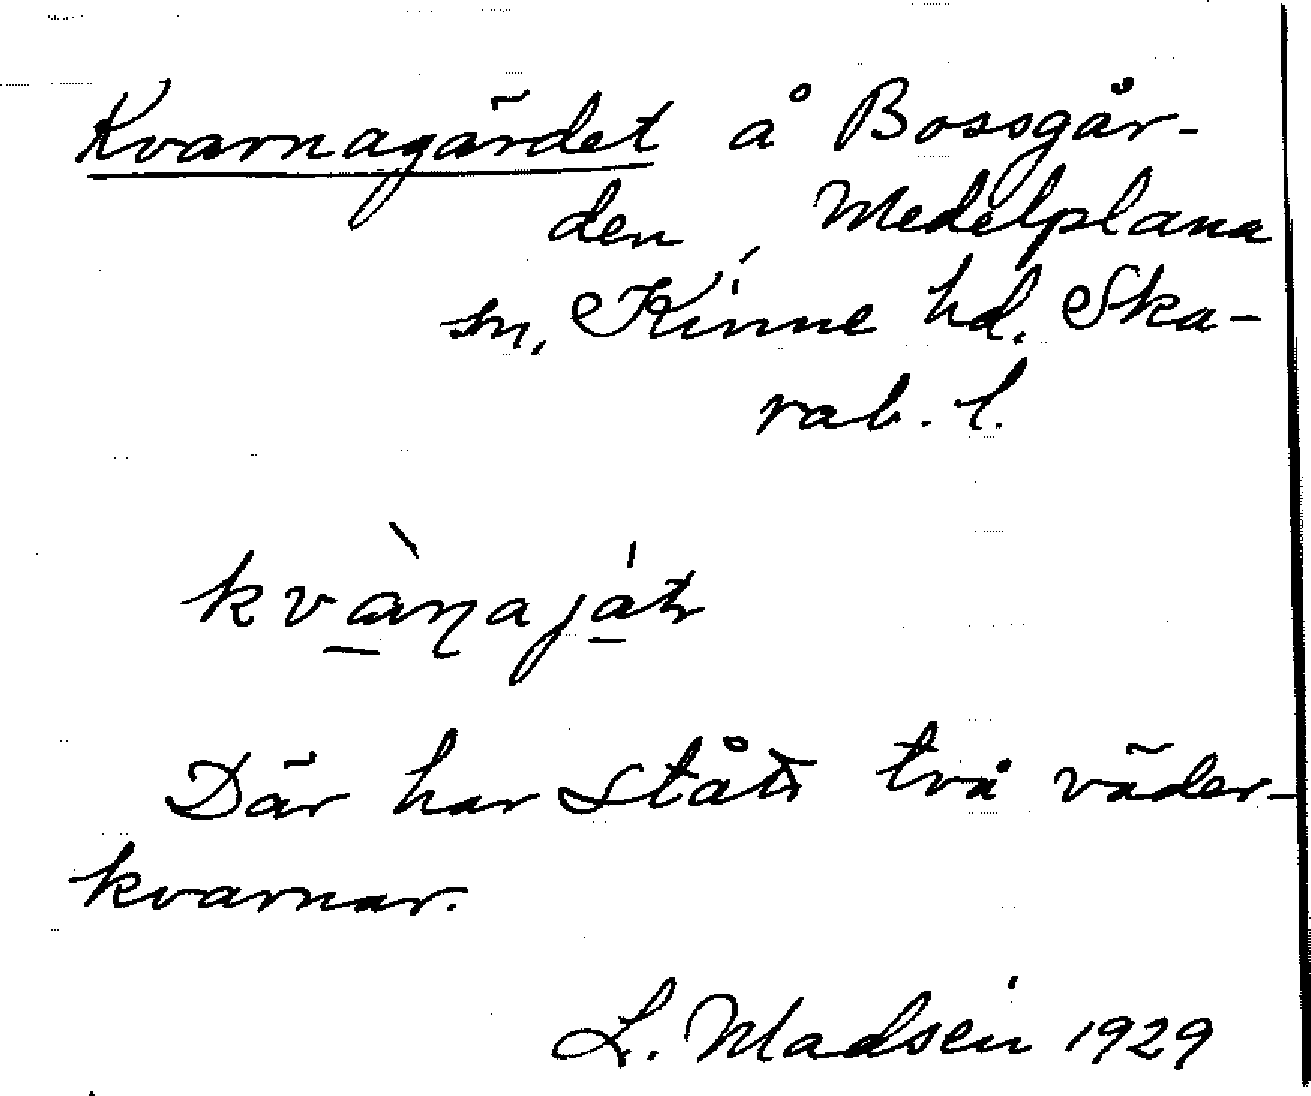 Kvarnagärdet å Bossgår-
den, Medelplana
sn, Kinne hd. Ska-
rab. l.
Där har stått två väder-
kvarnar.
L. Madsén 1929